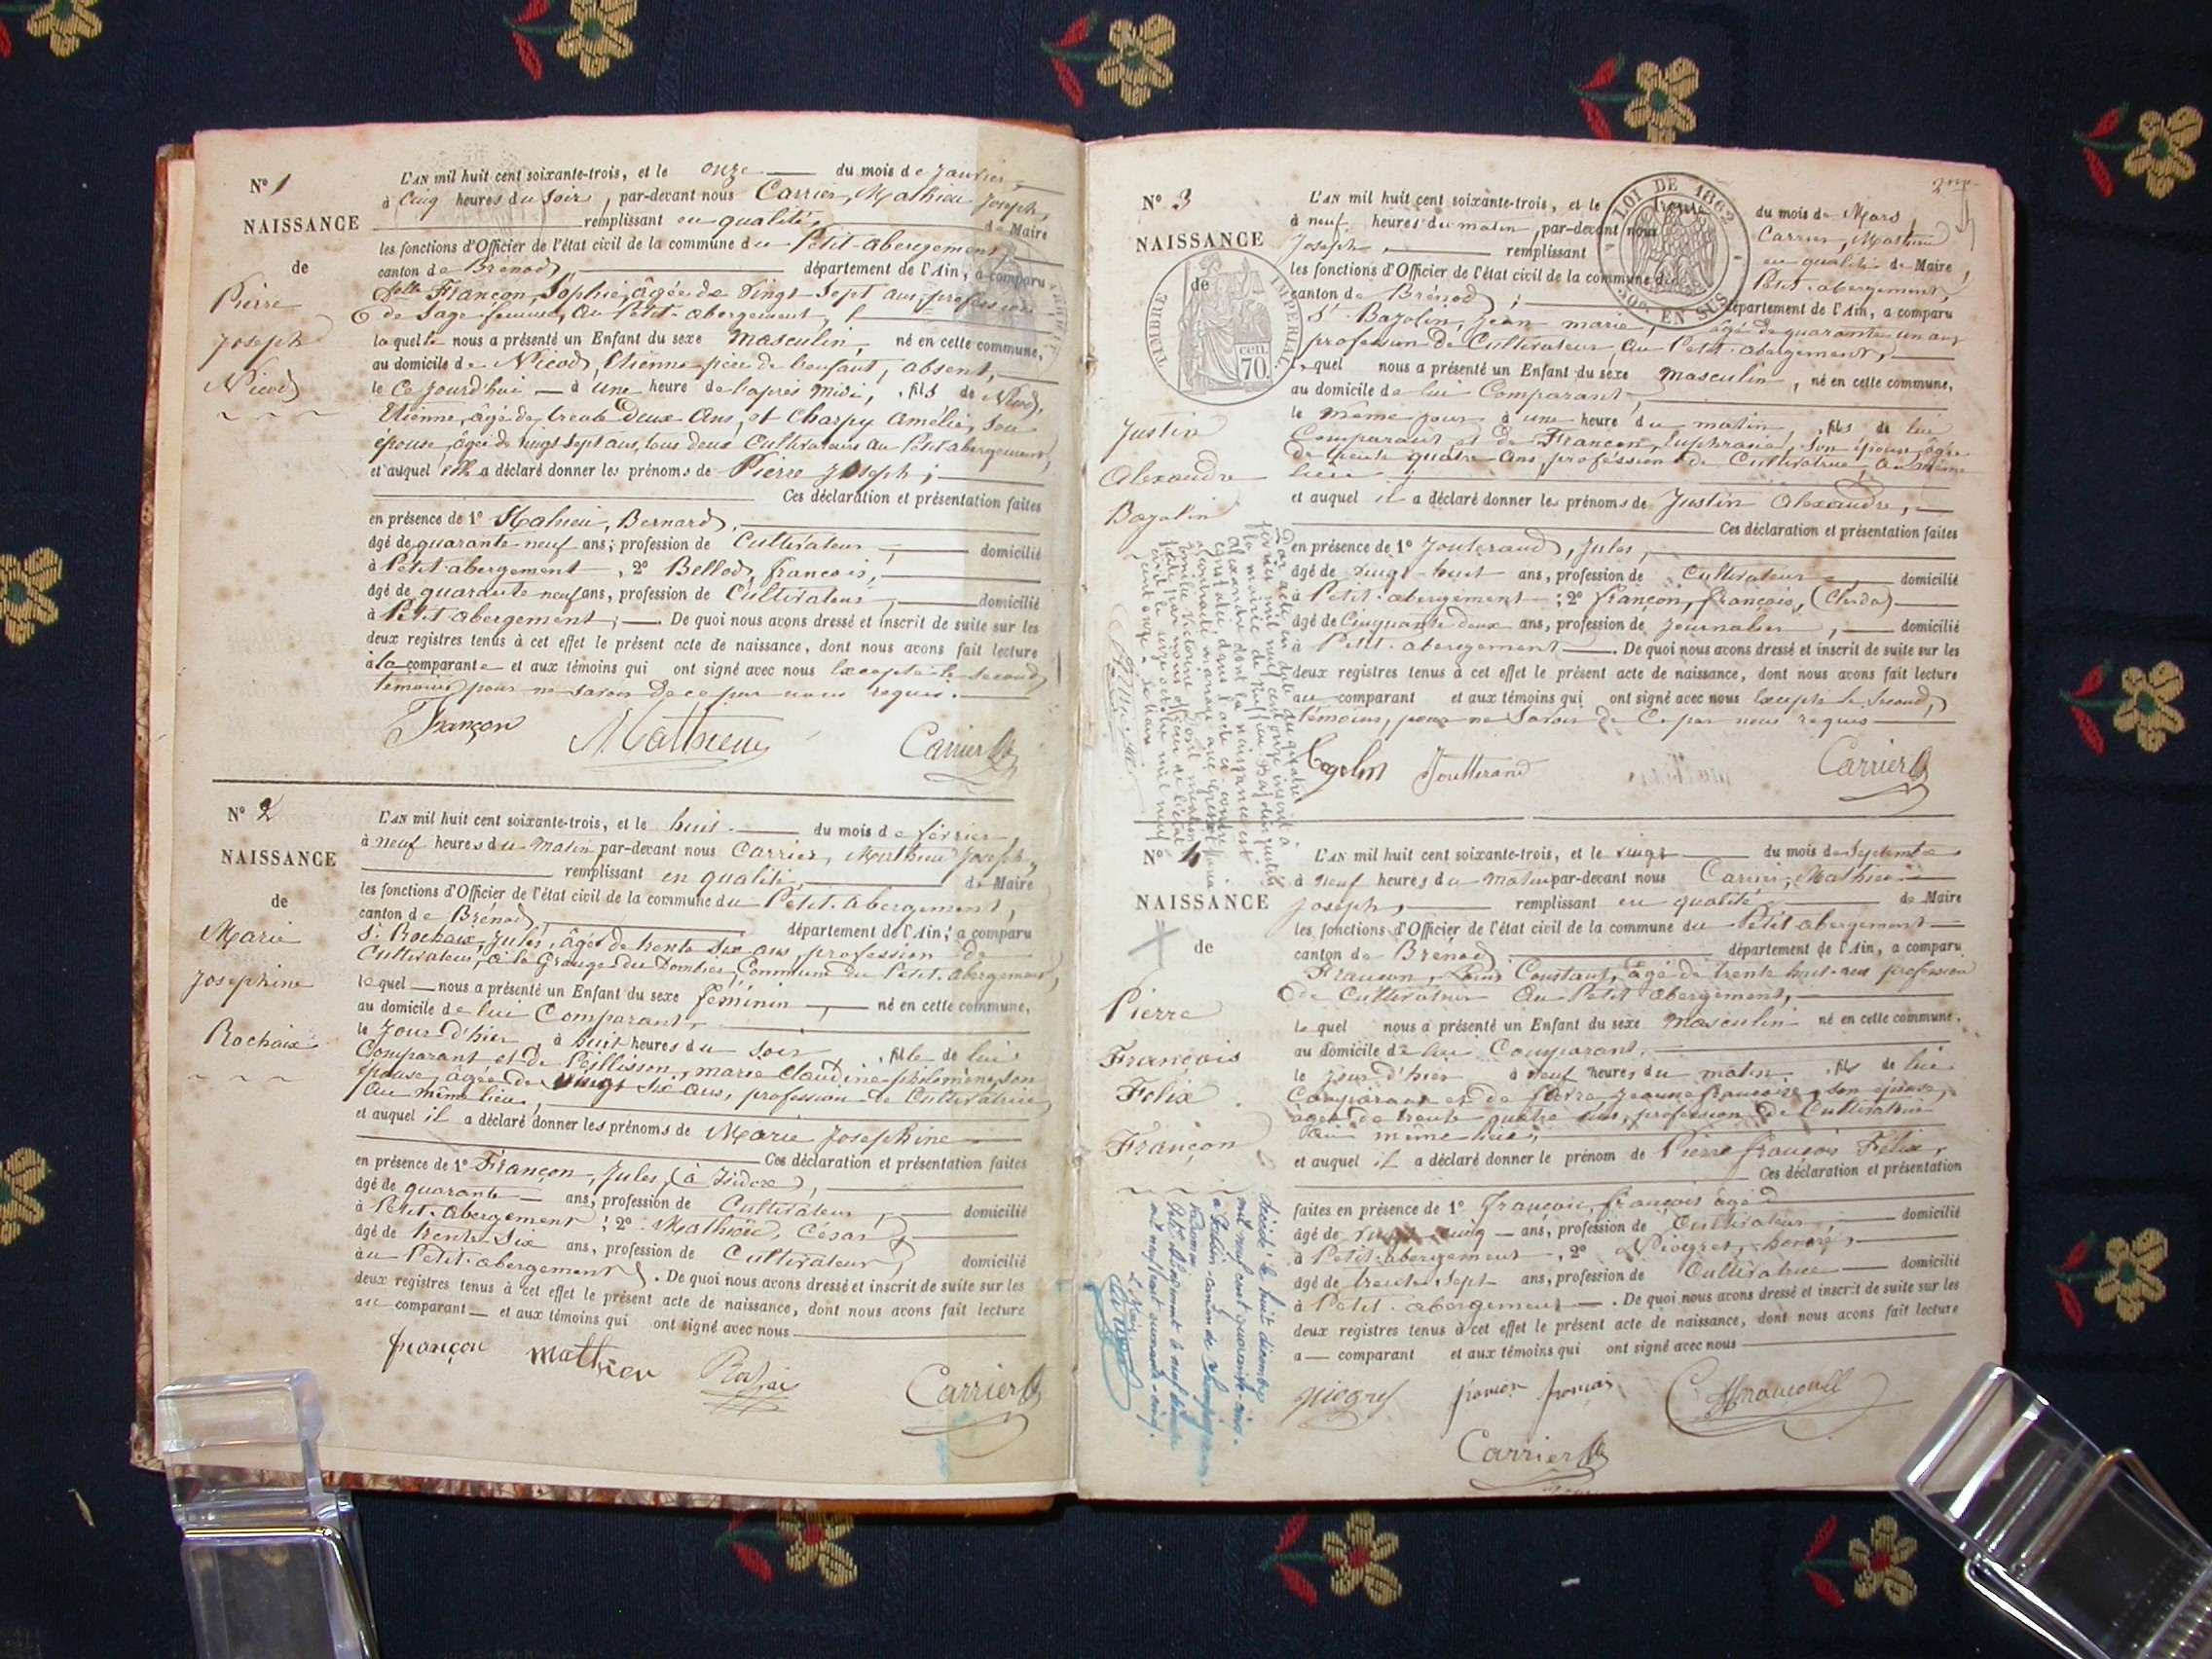 Nº 1
NAISSANCE
de
Pierre
Joseph
Nicod
L'AN mil huit cent soixante-trois, et le onze du mois de Janvier,
à Cinq heures du Soir, par-devant nous Carrier, Mathieu Joseph,
remplissant en qualité de Maire
les fonctions d'Officier de l'état civil de la commune du Petit-abergement,
canton de Brénod, département de l'Ain, a comparu
Françon, Sophie, âgée de vingt-sept ans, profession
de Sage-femme, au Petit-abergement,
laquelle nous a présenté un Enfant du sexe masculin, né en cette commune,
au domicile de Nicod, Etienne père de l'enfant, absent,
le Ce jourd'hui à une heure de l'après midi, fils de Nicod,
Etienne, âgé de trente deux ans, et Charpy Amélie, son
épouse, âgée de vingt sept ans, tous deux Cultivateurs au Petit abergement,
et auquel elle a déclaré donner les prénoms de Pierre Joseph;
Ces déclaration et présentation faites
en présence de 1º Mathieu, Bernard,
âgé de quarante-neuf ans; profession de Cultivateur, domicilié
à Petit-abergement, 2º Bellod, françois,
âgé de quarante neuf ans, profession de Cultivateur, domicilié
à Petit-abergement; De quoi nous avons dressé et inscrit de suite sur les
deux registres tenus à cet effet le présent acte de naissance, dont nous avons fait lecture
à la comparante et aux témoins qui ont signé avec nous excepté le second
témoin pour ne savoir de ce par nous requis.
Françon Mathieu Carrier
Nº 2
NAISSANCE
de
Marie
Josephine
Rochaix
L'AN mil huit cent soixante-trois, et le huit du mois de février,
à neuf heures du matin par-devant nous Carrier, Mathieu Joseph,
remplissant en qualité, de Maire
les fonctions d'Officier de l'état civil de la commune du Petit-abergement,
canton de Brénod, département de l'Ain, a comparu
Sr Rochaix, Jules, âgé de trente six ans, profession de
Cultivateur, à la Grange du Dombier, Commune du Petit-abergement,
lequel nous a présenté un Enfant du sexe féminin, né en cette commune,
au domicile de lui Comparant,
le Jour d'hier, à huit heures du soir, fille de lui
Comparant et de Peillisson, marie Claudine philomène, son
épouse, âgée de vingt six ans, profession de Cultivatrice,
au même lieu,
et auquel il a déclaré donner les prénoms de Marie Josephine
Ces déclaration et présentation faites
en présence de 1º Françon, Jules, (à Isidore),
âgé de quarante ans, profession de Cultivateur, domicilié
à Petit-abergement; 2º Mathieu, César,
âgé de trente-six ans, profession de Cultivateur, domicilié
au Petit-abergement. De quoi nous avons dressé et inscrit de suite sur les
deux registres tenus à cet effet le présent acte de naissance, dont nous avons fait lecture
au comparant et aux témoins qui ont signé avec nous
françon mathieu Carrier
2me
LOI DE 1862
50c. EN SUS
TIMBRE IMPERIAL
70 cen.
Nº 3
NAISSANCE
de
Justin
Alexandre
Bazolin
L'AN mil huit cent soixante-trois, et le trente du mois de Mars,
à neuf heures du matin, par-devant nous Carrier, Mathieu
Joseph, remplissant en qualité de Maire,
les fonctions d'Officier de l'état civil de la commune du Petit-abergement,
canton de Brénod, département de l'Ain, a comparu
Sr Bazolin, Jean marie, âgé de quarante un ans
profession de Cultivateur, au Petit-abergement,
lequel nous a présenté un Enfant du sexe masculin, né en cette commune,
au domicile de lui Comparant,
le même jour à une heure du matin, fils de lui
Comparant et de Françon, Euphrasie, Son épouse, âgée
de trente quatre ans, profession de Cultivatrice, au même
lieu;
et auquel il a déclaré donner les prénoms de Justin Alexandre,
Ces déclaration et présentation faites
en présence de 1º Joutterand, Jules,
âgé de vingt-huit ans, profession de Cultivateur, domicilié
à Petit-abergement; 2º françon, françois,
âgé de Cinquante deux ans, profession de Journalier, domicilié
à Petit-abergement. De quoi nous avons dressé et inscrit de suite sur les
deux registres tenus à cet effet le présent acte de naissance, dont nous avons fait lecture
au comparant et aux témoins qui ont signé avec nous excepté le Second,
témoin, pour ne Savoir de Ce par nous requis
Joutterand Carrier
Nº 4
NAISSANCE
de
Pierre
François
Felix
Françon
L'AN mil huit cent soixante-trois, et le vingt du mois de Septembre
à neuf heures du matin par-devant nous Carrier, Mathieu
Joseph, remplissant en qualité de Maire
les fonctions d'Officier de l'état civil de la commune du Petit abergement
canton de Brénod, département de l'Ain, a comparu
Françon, Louis Constant, âgé de trente huit ans profession
de Cultivateur au Petit abergement,
lequel nous a présenté un Enfant du sexe masculin né en cette commune,
au domicile de lui Comparant,
le jour d'hier à neuf heures du matin, fils de lui
Comparant et de Jeanne françoise, son épouse,
âgée de trente quatre ans, profession de Cultivatrice
au même lieu,
et auquel il a déclaré donner le prénom de Pierre françois Félix,
Ces déclaration et présentation
faites en présence de 1º françois âgé
âgé de vingt cinq ans, profession de Cultivateur, domicilié
à Petit-abergement, 2º
âgé de trente sept ans, profession de Cultivateur domicilié
à Petit-abergement. De quoi nous avons dressé et inscrit de suite sur les
deux registres tenus à cet effet le présent acte de naissance, dont nous avons fait lecture
a comparant et aux témoins qui ont signé avec nous
Carrier
décédé le huit décembre
mil neuf cent quarante-cinq